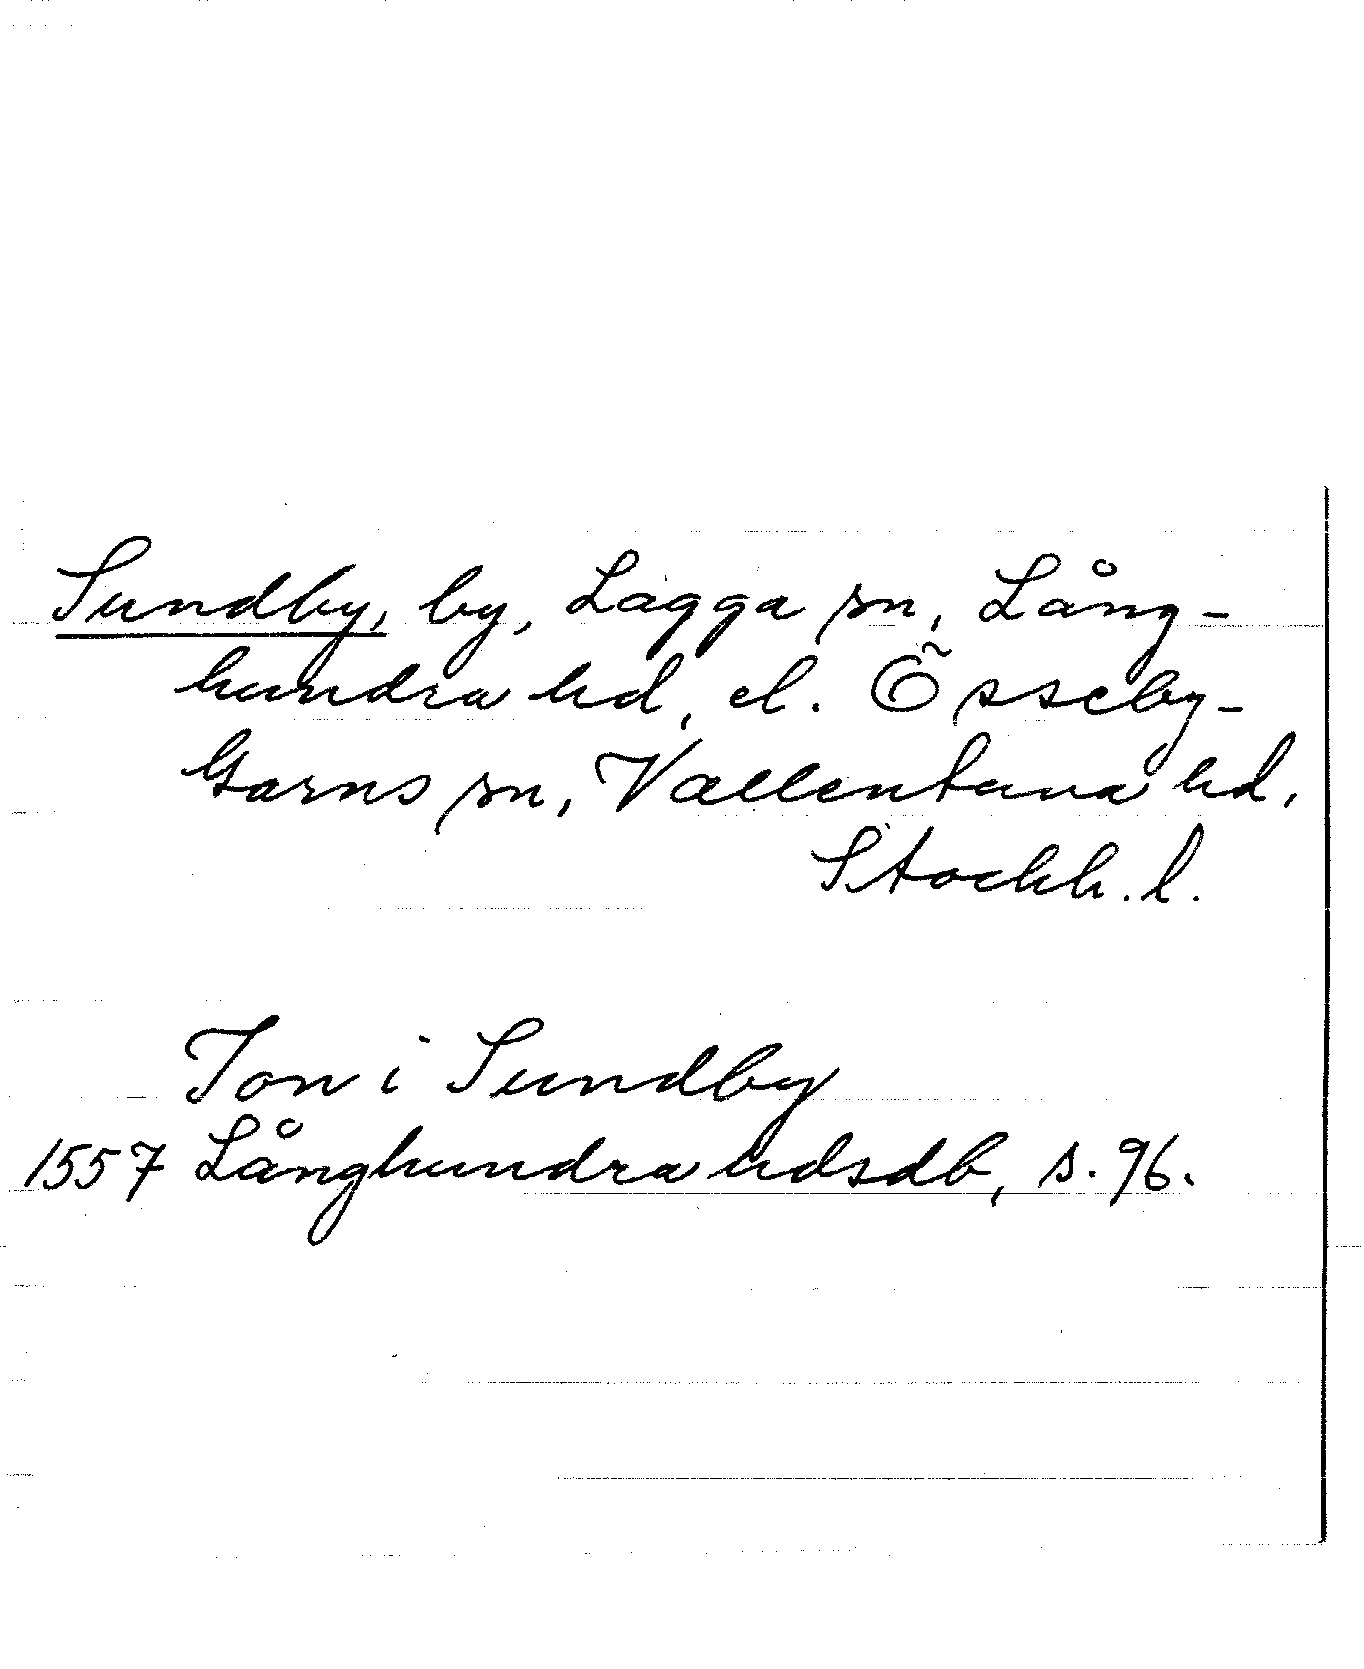 Sundby, by, Lagga sn, Lång-
hundra hd, el. Össeby-
Garns sn, Vallentuna hd,
Stockh. l.
Jon i Sundby
1557 Långhundra hdsdb, s. 96.